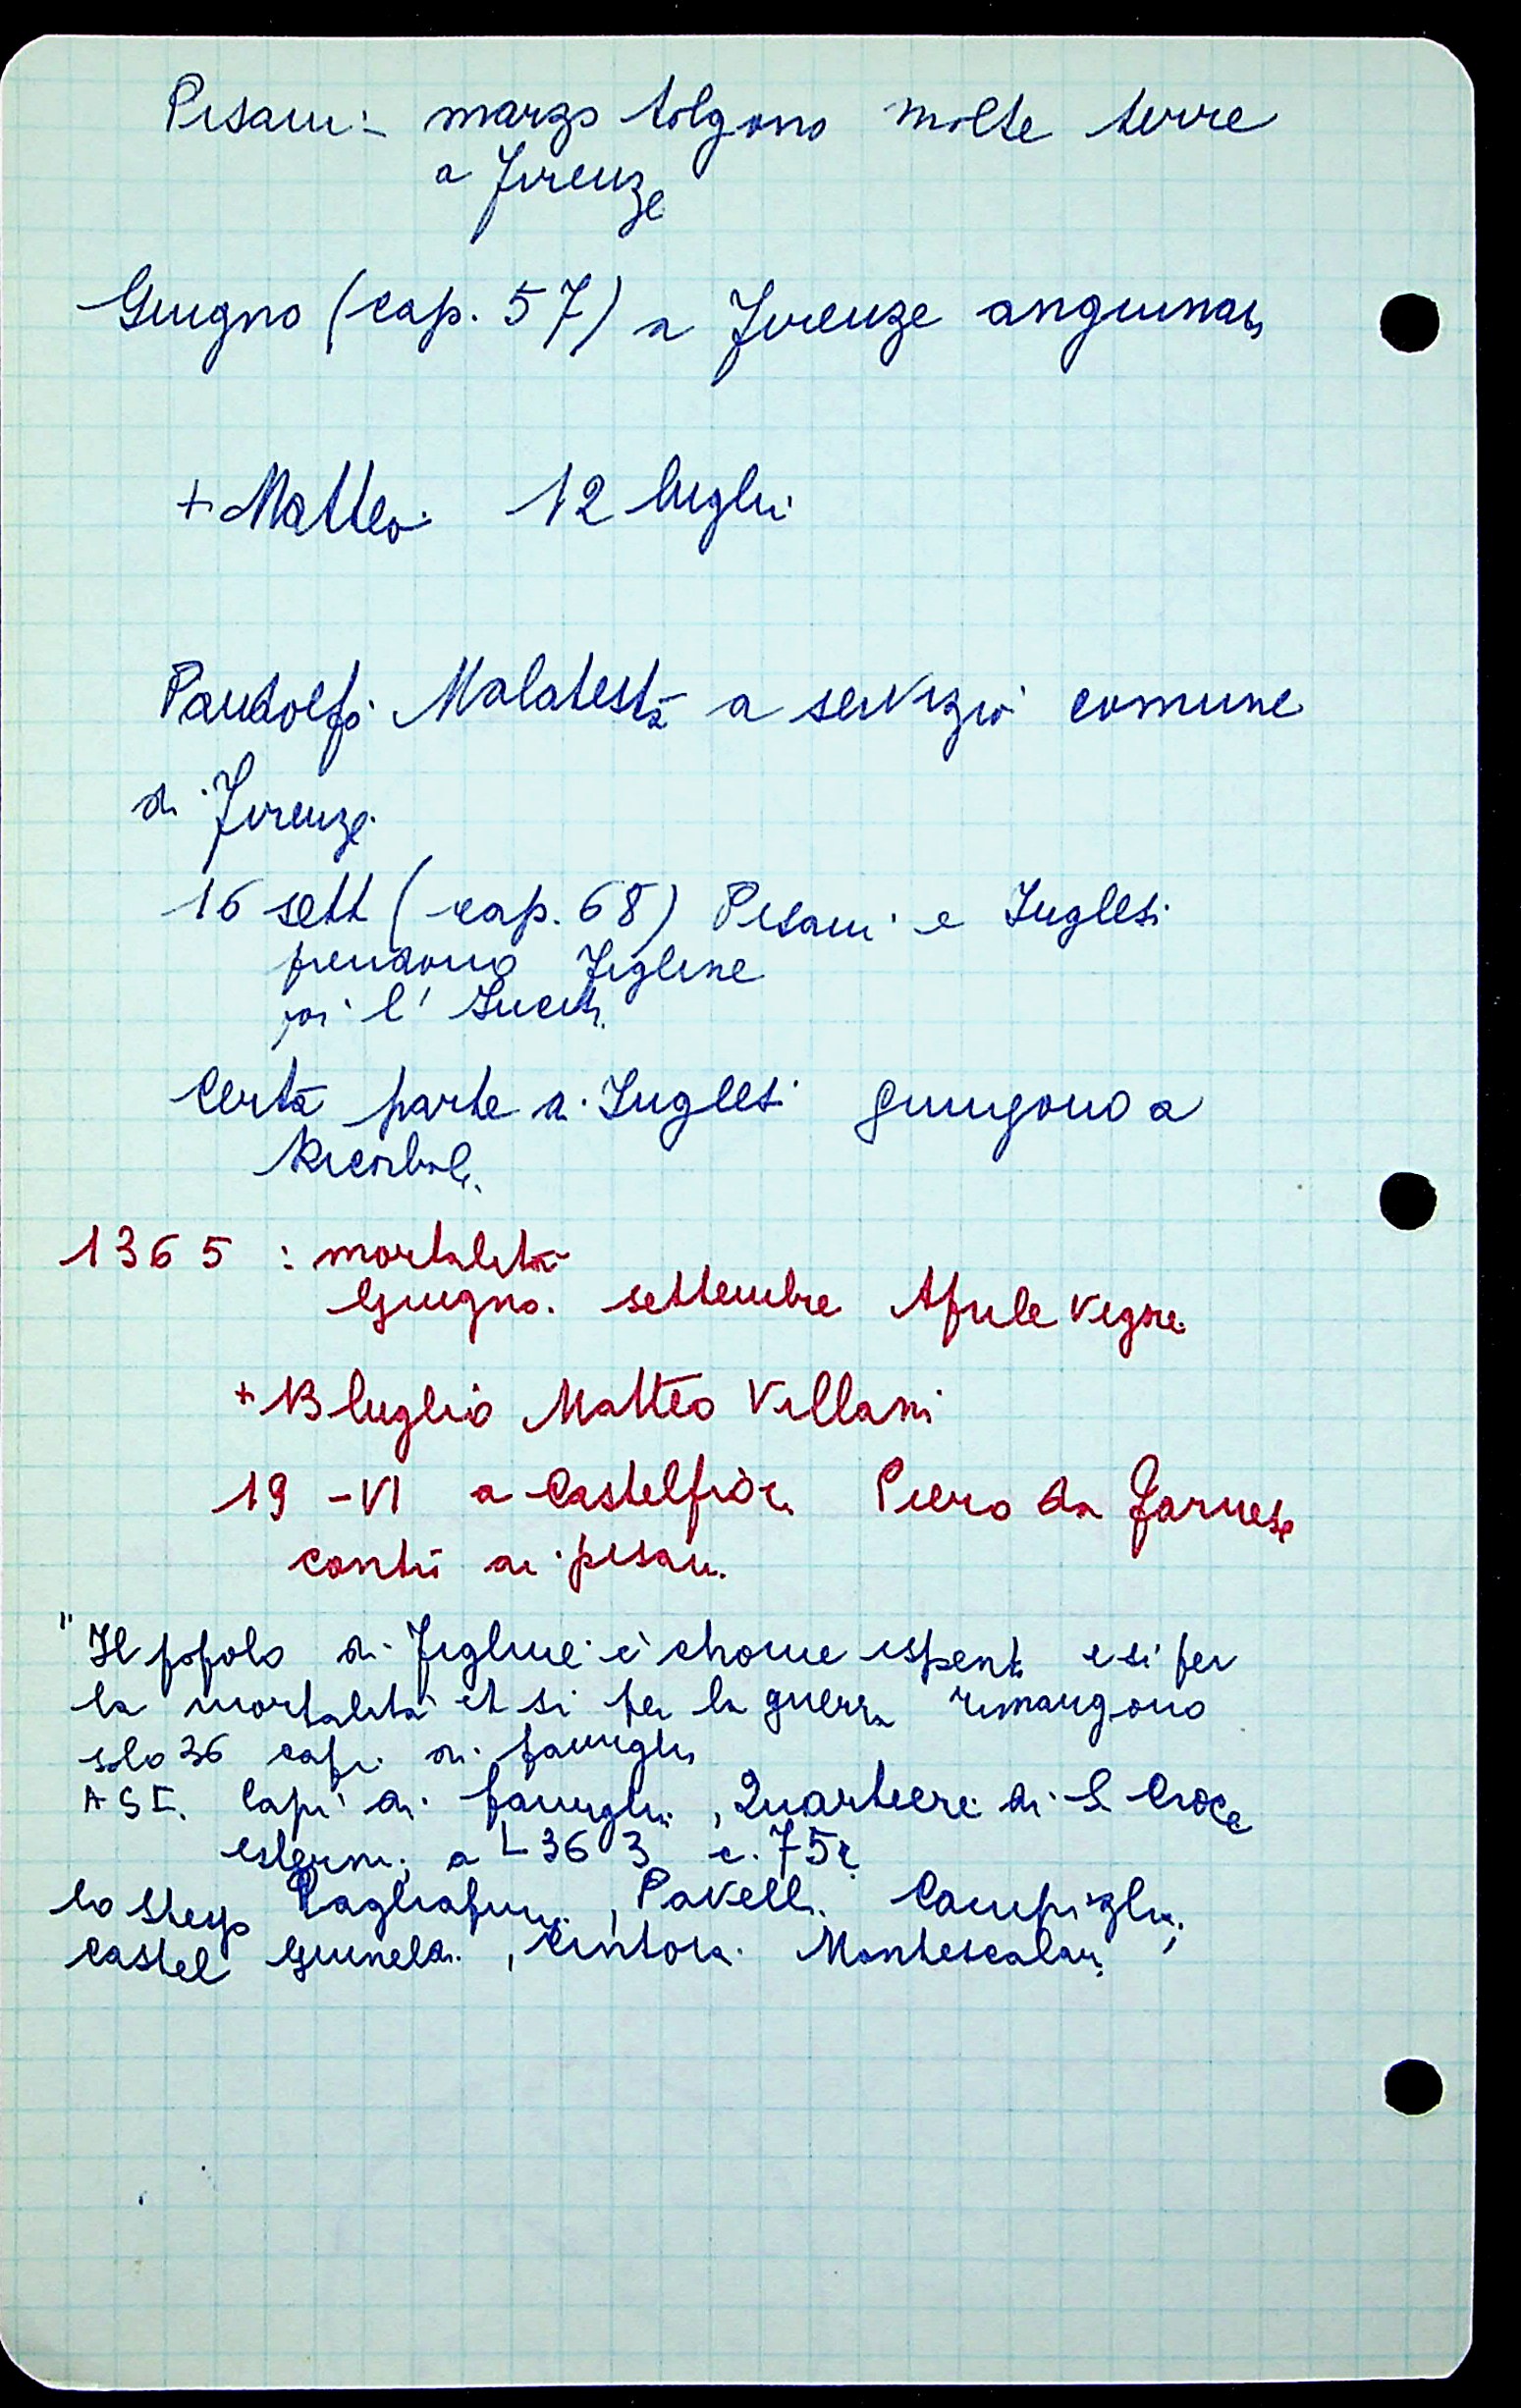 Pisani: marzo tolgono molte terre
a Firenze
Giugno (cap. 57) a Firenze anguinaia
+ Matteo 12 luglio
Pandolfo Malatesta a servizio comune
di Firenze
16 sett (cap. 68) Pisani e Inglesi
prendono Figline
poi l'Incisa
Certa parte di Inglesi giungono a
Ricorboli
1365 : mortalità
Giugno settembre Aprile
+ 13 luglio Matteo Villani
19 - VI a Castelfior. Piero da Farnese
contro ai pisani
"Il popolo di Figline è chome ispento e sì per
la mortalità et sì per la guerra rimangono
solo 36 capi di famiglia
ASF. Capi di famiglia, Quartiere di S. Croce
esterni, a 1363 c. 75r
lo stesso Pagliafun, Pavelli Campiglia,
Castel Guineldi, Cintoia Montescalari